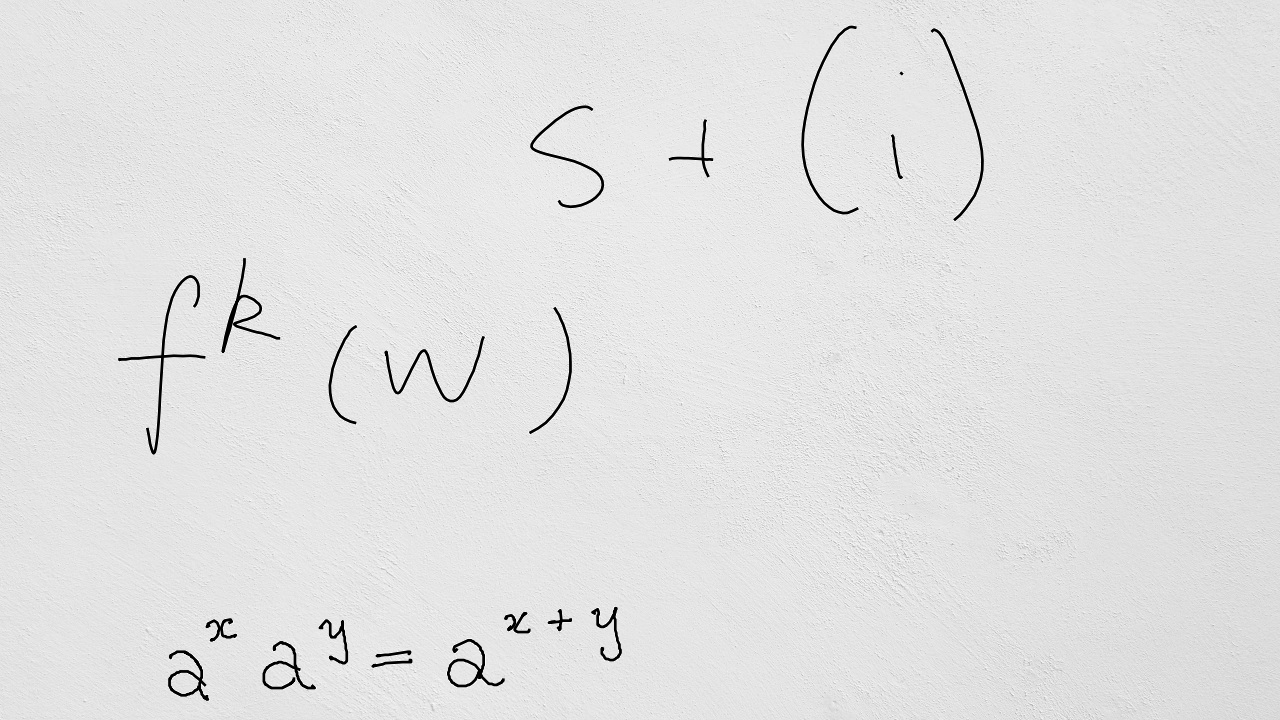 S + (i)
f^k (w)
a^x a^y = a^{x+y}